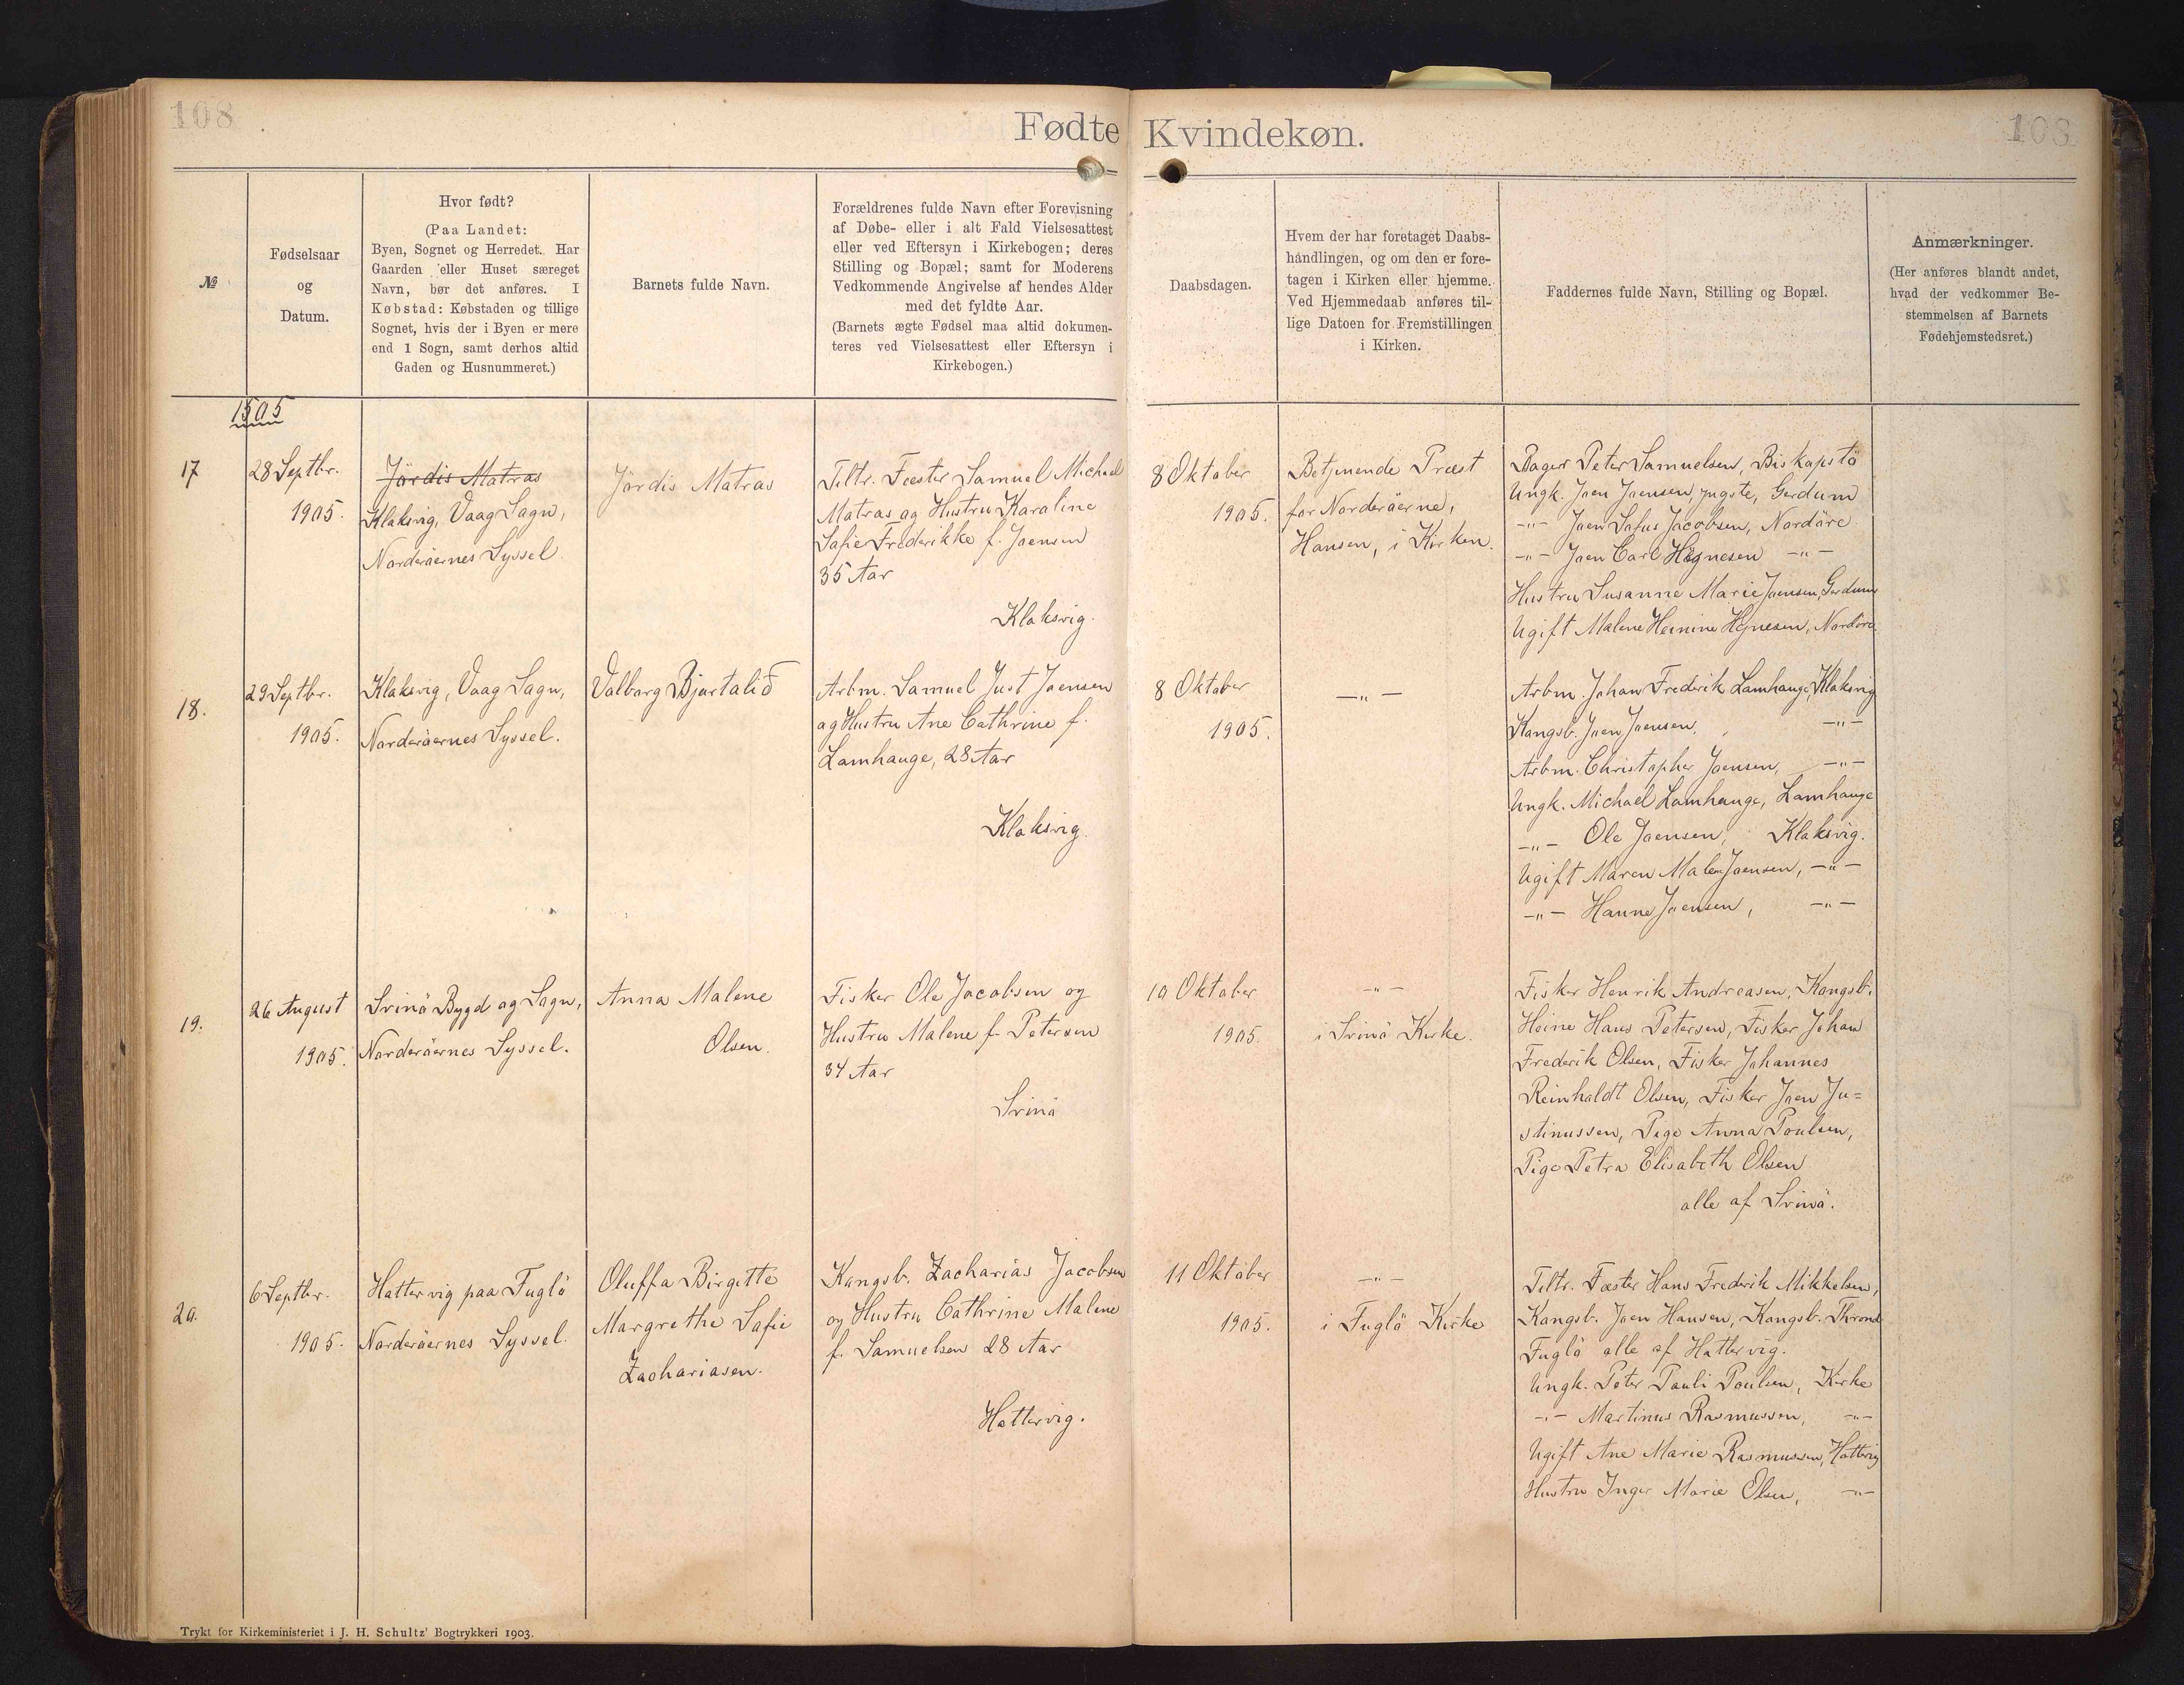 108
Fødte
№
Fødselsaar
og
Datum.
Hvor født?
(Paa Landet:
Byen, Sognet og Herredet. Har
Gaarden eller Huset særeget
Navn, bør det anføres. I
Købstad: Købstaden og tillige
Sognet, hvis der i Byen er mere
end 1 Sogn, samt derhos altid
Gaden og Husnummeret.)
Barnets fulde Navn.
Forældrenes fulde Navn efter Forevisning
af Døbe- eller i alt Fald Vielsesattest
eller ved Eftersyn i Kirkebogen; deres
Stilling og Bopæl; samt for Moderens
Vedkommende Angivelse af hendes Alder
med det fyldte Aar.
(Barnets ægte Fødsel maa altid dokumen-
teres ved Vielsesattest eller Eftersyn i
Kirkebogen.)
1905
17
28 Septbr.
1905.
Jördis Matras
Klaksvig, Vaag Sogn,
Norderöernes Syssel.
Jördis Matras
Tiltr. Fæster Samuel Michael
Matras og Hustru Karoline
Sofie Frederikke f. Joensen
35 Aar
Klaksvig.
18.
29 Septbr.
1905.
Klaksvig, Vaag Sogn,
Norderöernes Syssel.
Valborg Bjartalið
Arbm. Samuel Just Joensen
og Hustru Ane Cathrine f.
Lamhauge, 28 Aar
Klaksvig.
19.
26 August
1905.
Svinö Bygd og Sogn,
Norderöernes Syssel.
Anna Malene
Olsen.
Fisker Ole Jacobsen og
Hustru Malene f. Petersen
34 Aar
Svinö
20.
6 Septbr.
1905.
Hattervig paa Fuglö
Norderöernes Syssel.
Oluffa Birgitte
Margrethe Sofie
Zachariasen.
Kongsb. Zacharias Jacobsen
og Hustru Cathrine Malene
f. Samuelsen 28 Aar
Hattervig.
Trykt for Kirkeministeriet i J. H. Schultz' Bogtrykkeri 1903.
Kvindekøn.
108
Daabsdagen.
Hvem der har foretaget Daabs-
handlingen, og om den er fore-
tagen i Kirken eller hjemme.
Ved Hjemmedaab anføres til-
lige Datoen for Fremstillingen
i Kirken.
Faddernes fulde Navn, Stilling og Bopæl.
Anmærkninger.
(Her anføres blandt andet,
hvad der vedkommer Be-
stemmelsen af Barnets
Fødehjemstedsret.)
8 Oktober
1905.
Betjenende Præst
for Norderöerne,
Hansen, i Kirken.
Bager Peter Samuelsen, Biskapstö
Ungk. Joen Joensen, yngste, Gerdum
-"- Joen Sofus Jacobsen, Nordöre
-"- Joen Carl Högnesen -"-
Hustru Susanne Marie Joensen, Gerdum
Ugift Malene Heinine Högnesen, Nordöre
8 Oktober
1905.
-"-
Arbm. Johan Frederik Lamhauge, Klaksvig
Kongsb. Joen Joensen, -"-
Arbm. Christopher Joensen, -"-
Ungk. Michael Lamhauge, Lamhauge
-"- Ole Joensen, Klaksvig.
Ugift Maren Malene Joensen, -"-
-"- Hanne Joensen, -"-
10 Oktober
1905.
-"-
i Svinö Kirke.
Fisker Henrik Andreasen, Kongsb.
Heine Hans Petersen, Fisker Johan
Frederik Olsen, Fisker Johannes
Reinholdt Olsen, Fisker Joen Ju=
stinussen, Pige Anna Poulsen,
Pige Petra Elisabeth Olsen
alle af Svinö.
11 Oktober
1905.
-"-
i Fuglö Kirke
Tiltr. Fæster Hans Frederik Mikkelsen,
Kongsb. Joen Hansen, Kongsb. Thrond
Fuglö alle af Hattervig.
Ungk. Peter Pauli Poulsen, Kirke
-"- Martinus Rasmussen, -"-
Ugift Ane Marie Rasmussen, Hattervig
Hustru Inger Marie Olsen, -"-